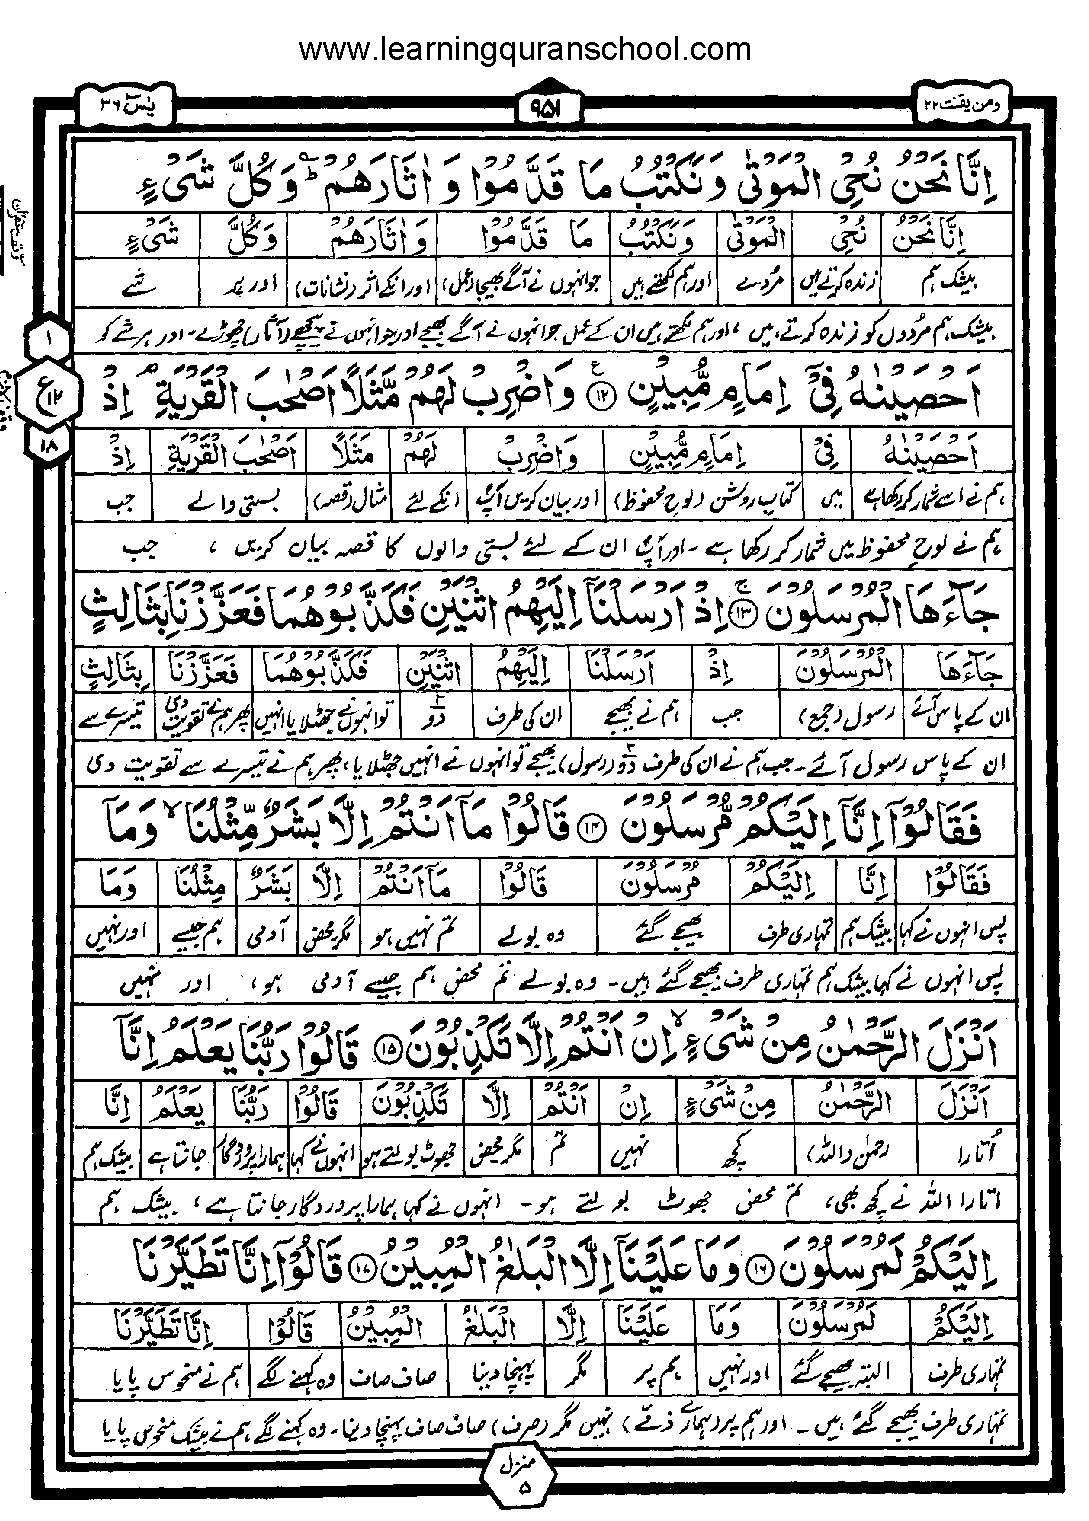 www.learningquranschool.com
ومن یقنت ۲۲
۹۵۱
یٰسٓ ۳۶
اِنَّا نَحْنُ نُحْیِ الْمَوْتٰی وَنَکْتُبُ مَا قَدَّمُوْا وَ اٰثَارَهُمْ ؕ وَکُلَّ شَیْءٍ
اِنَّا نَحْنُ نُحْیِ الْمَوْتٰی وَنَکْتُبُ مَا قَدَّمُوْا وَ اٰثَارَهُمْ وَکُلَّ شَیْءٍ
بیشک ہم زندہ کرتے ہیں مُردے اور ہم لکھتے ہیں جو انہوں نے آگے بھیجا (عمل) اور انکے اثر (نشانات) اور ہر شے
بیشک ہم مُردوں کو زندہ کرتے ہیں ، اور ہم لکھتے ہیں ان کے عمل جو انہوں نے آگے بھیجے اور جو انہوں نے پیچھے (آثار) چھوڑے۔ اور ہر شے کو
۱
ع ۱۲
۱۸
اَحْصَیْنٰهُ فِیْۤ اِمَامٍ مُّبِیْنٍ ۝۱۲ وَاضْرِبْ لَهُمْ مَّثَلًا اَصْحٰبَ الْقَرْیَةِ ۘ اِذْ
اَحْصَیْنٰهُ فِیْ اِمَامٍ مُّبِیْنٍ وَاضْرِبْ لَهُمْ مَثَلًا اَصْحٰبَ الْقَرْیَةِ اِذْ
ہم نے اسے شمار کر رکھا ہے میں کتاب روشن (لوح محفوظ) اور بیان کریں آپؐ انکے لئے مثال (قصہ) بستی والے جب
ہم نے لوح محفوظ میں شمار کر رکھا ہے ۔ اور آپؐ ان کے لئے بستی والوں کا قصہ بیان کریں ، جب
جَآءَهَا الْمُرْسَلُوْنَ ۝۱۳ اِذْ اَرْسَلْنَاۤ اِلَیْهِمُ اثْنَیْنِ فَکَذَّبُوْهُمَا فَعَزَّزْنَا بِثَالِثٍ
جَآءَهَا الْمُرْسَلُوْنَ اِذْ اَرْسَلْنَا اِلَیْهِمُ اثْنَیْنِ فَکَذَّبُوْهُمَا فَعَزَّزْنَا بِثَالِثٍ
ان کے پاس آئے رسول (جمع) جب ہم نے بھیجے ان کی طرف دو تو انہوں نے جھٹلایا انہیں پھر ہم نے تقویت دی تیسرے سے
ان کے پاس رسول آئے ۔ جب ہم نے ان کی طرف دو (رسول) بھیجے تو انہوں نے انہیں جھٹلایا ، پھر ہم نے تیسرے سے تقویت دی
فَقَالُوْۤا اِنَّاۤ اِلَیْکُمْ مُّرْسَلُوْنَ ۝۱۴ قَالُوْا مَاۤ اَنْتُمْ اِلَّا بَشَرٌ مِّثْلُنَا ۙ وَمَاۤ
فَقَالُوْا اِنَّا اِلَیْکُمْ مُرْسَلُوْنَ قَالُوْا مَاۤ اَنْتُمْ اِلَّا بَشَرٌ مِثْلُنَا وَمَا
پس انہوں نے کہا بیشک ہم تمہاری طرف بھیجے گئے وہ بولے تم نہیں ہو مگر محض آدمی ہم جیسے اور نہیں
پس انہوں نے کہا بیشک ہم تمہاری طرف بھیجے گئے ہیں۔ وہ بولے تم محض ہم جیسے آدمی ہو، اور نہیں
اَنْزَلَ الرَّحْمٰنُ مِنْ شَیْءٍ ۙ اِنْ اَنْتُمْ اِلَّا تَکْذِبُوْنَ ۝۱۵ قَالُوْا رَبُّنَا یَعْلَمُ اِنَّاۤ
اَنْزَلَ الرَّحْمٰنُ مِنْ شَیْءٍ اِنْ اَنْتُمْ اِلَّا تَکْذِبُوْنَ قَالُوْا رَبُّنَا یَعْلَمُ اِنَّا
اُتارا رحمٰن (اللہ) کچھ نہیں تم مگر محض جھوٹ بولتے ہو انہوں نے کہا ہمارا پروردگار جانتا ہے بیشک ہم
اتارا اللہ نے کچھ بھی، تم محض جھوٹ بولتے ہو۔ انہوں نے کہا ہمارا پروردگار جانتا ہے ، بیشک ہم
اِلَیْکُمْ لَمُرْسَلُوْنَ ۝۱۶ وَمَا عَلَیْنَاۤ اِلَّا الْبَلٰغُ الْمُبِیْنُ ۝۱۷ قَالُوْۤا اِنَّا تَطَیَّرْنَا
اِلَیْکُمْ لَمُرْسَلُوْنَ وَمَا عَلَیْنَا اِلَّا الْبَلٰغُ الْمُبِیْنُ قَالُوْا اِنَّا تَطَیَّرْنَا
تمہاری طرف البتہ بھیجے گئے اور نہیں ہم پر مگر پہنچا دینا صاف صاف وہ کہنے لگے ہم نے منحوس پایا
تمہاری طرف بھیجے گئے ہیں ۔ اور ہم پر (ہمارے ذمے) نہیں مگر (صرف) صاف صاف پہنچا دینا۔ وہ کہنے لگے ہم نے بیشک منحوس پایا
منزل ۵